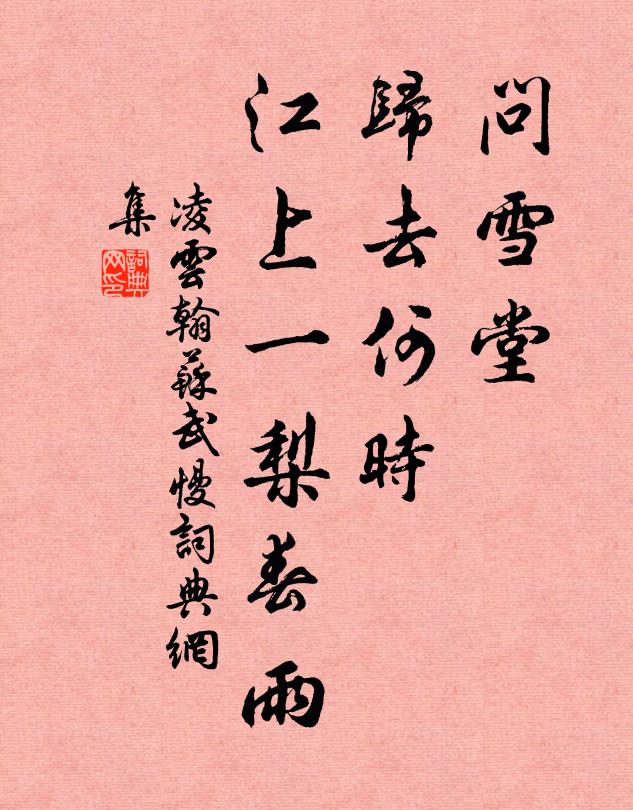 問雪堂
歸去何時
江上一梨春雨
凌雲翰蘇武慢詞典網
集
詞典
网印